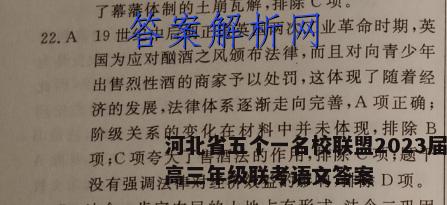 了幕藩体制的土崩瓦解,排除C项。
答案解析网
22. A 19世 中后 正 英 两次 业革命时期,英
国为应对酗酒之风颁布法律,而且对向青少年
出售烈性酒的商家予以处罚,这体现了随着经
济的发展,法律体系逐渐走向完善,A项正确;
阶级关系的变化在材料中并未体现,排除B
河北省五个一名校联盟2023届
项;C项夸大了售酒法的作用,排除C项;题干
高三年级联考语文答案
没有强调法律对经济效益的 排除D项。